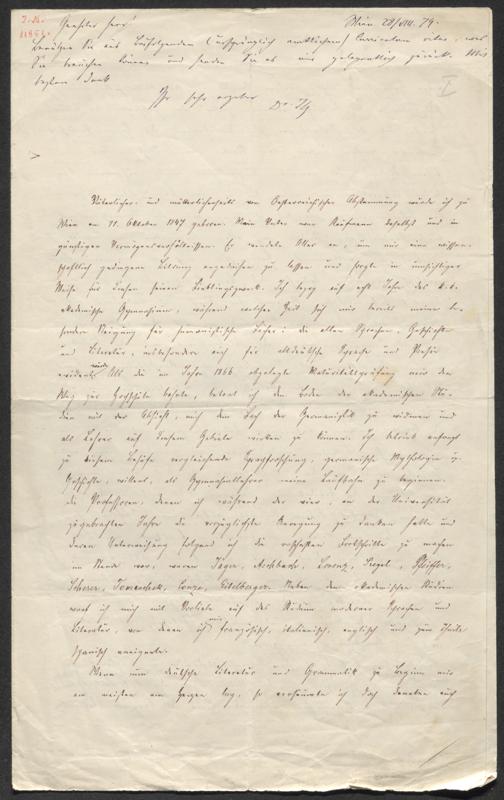 I. N.
11861.
Geehrter Herr!
Wien 28/VIII. 79.
Benützen Sie aus beifolgendem (ursprünglich amtlichen) Curriculum vitae, was
Sie brauchen können und senden Sie es mir gelegentlich zurück. Mit
bestem Dank
Ihr sehr ergebener
I
Väterlicher- und mütterlicherseits von Oesterreichischer Abstammung wurde ich zu
Wien am 11. Oktober 1847 geboren. Mein Vater war Kaufmann daselbst und in
günstigen Vermögensverhältnissen. Er wendete Alles an, um mir eine wissen-
schaftlich gediegene Bildung angedeihen zu lassen und sorgte in umsichtiger
Weise für diesen seinen Lieblingszweck. Ich lag auf acht Jahre des k. k.
akademische Gymnasium, während welcher Zeit sich mir bereits meine be-
sondere Neigung für humanistische Fächer: die alten Sprachen, Geschichte
und Literatur, insbesondere auch für altdeutsche Sprache und Poesie
Als die im Jahre 1866 abgelegte Maturitätsprüfung mir den
Weg zur Hochschule bahnte, betrat ich den Boden der akademischen Stu-
dien mit der Absicht, mich dem Fach der Germanistik zu widmen und
als Lehrer auf diesem Gebiete wirken zu können. Ich betrieb anfangs
zu diesem Behufe vergleichende Sprachforschung, germanische Mythologie u.
Geschichte, willens, als Gymnasiallehrer meine Laufbahn zu beginnen.
Die Professoren, denen ich während der vier, an der Universität
zugebrachten Jahre die vorzüglichste Anregung zu danken hatte und
deren Unterweisung folgend ich die raschesten Fortschritte zu machen
im Stande war, waren Jäger, Aschbach, Lorenz, Siegel, Pfeiffer,
Scherer, Tomaschek, Conze, Eitelberger. Neben den akademischen Studien
warf ich mich mit Vorliebe auf das Studium moderner Sprachen und
Literatur, von denen ich mir französisch, italienisch, englisch und zum Theile
spanisch aneignete.
Wenn nun deutsche Literatur und Grammatik zu Beginn mir
am meisten am Herzen lag, so versäumte ich doch daneben auch